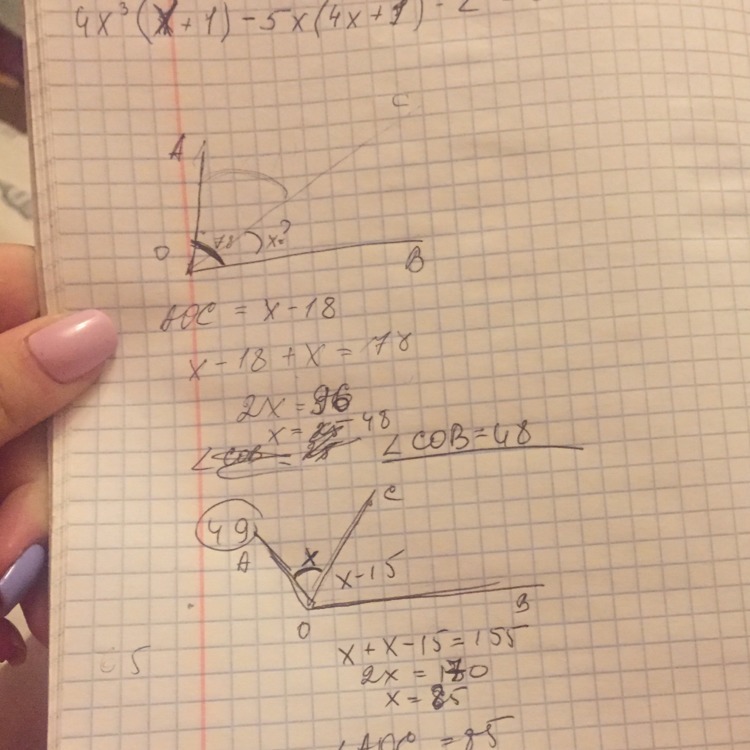 4x³(x+1)-5x(4x+1)-2
C
A
O 78 x?
B
AOC = x-18
x-18+x=78
2x=96
x= 48
∠COB=48
C
49
A x
x-15
B
O
x+x-15=155
5 2x=170
x=85
∠AOC=85